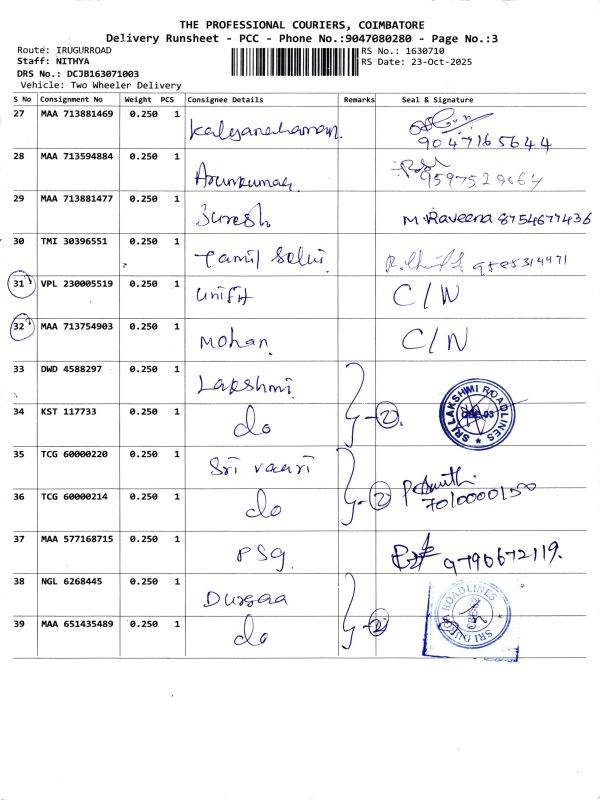 THE PROFESSIONAL COURIERS, COIMBATORE
Delivery Runsheet - PCC - Phone No.:9047080280 - Page No.:3
Route: IRUGURROAD
RS No.: 1630710
Staff: NITHYA
RS Date: 23-Oct-2025
DRS No.: DCJB163071003
Vehicle: Two Wheeler Delivery
S No Consignment No Weight PCS Consignee Details Remarks Seal & Signature
27 MAA 713881469 0.250 1 Kalyanaharaman
9047165644
28 MAA 713594884 0.250 1 Arunkumar
29 MAA 713881477 0.250 1 Suresh M. Raveena 8754677436
30 TMI 30396551 0.250 1 Tamil Selvi
31 VPL 230005519 0.250 1 Unifit C/N
32 MAA 713754903 0.250 1 Mohan C/N
33 DWD 4588297 0.250 1 Lakshmi
34 KST 117733 0.250 1 do 2 SRI LAKSHMI ROADLINES
35 TCG 60000220 0.250 1 Sri vaari
36 TCG 60000214 0.250 1 do 2 7010000150
37 MAA 577168715 0.250 1 PSG 9790672119.
38 NGL 6268445 0.250 1 Durgaa
39 MAA 651435489 0.250 1 do 2 SRI DURGA ROADLINES